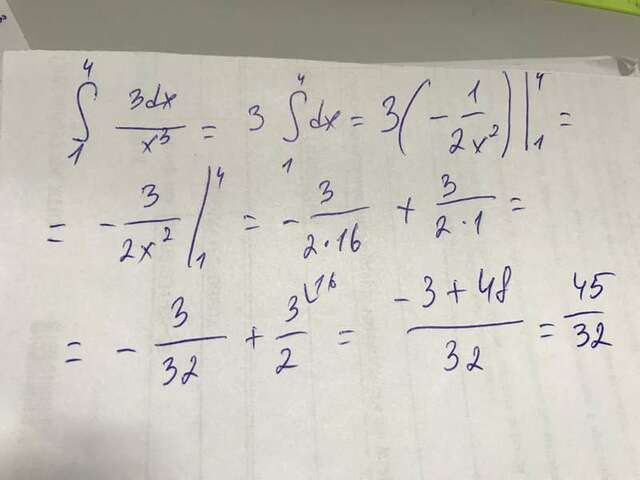 ∫₁⁴ 3dx/x³ = 3 ∫₁⁴ dx = 3(-1/2x²)|₁⁴ =
= -3/2x² |₁⁴ = -3/2·16 + 3/2·1 =
= -3/32 + 3/2 ⌞16 = -3+48/32 = 45/32